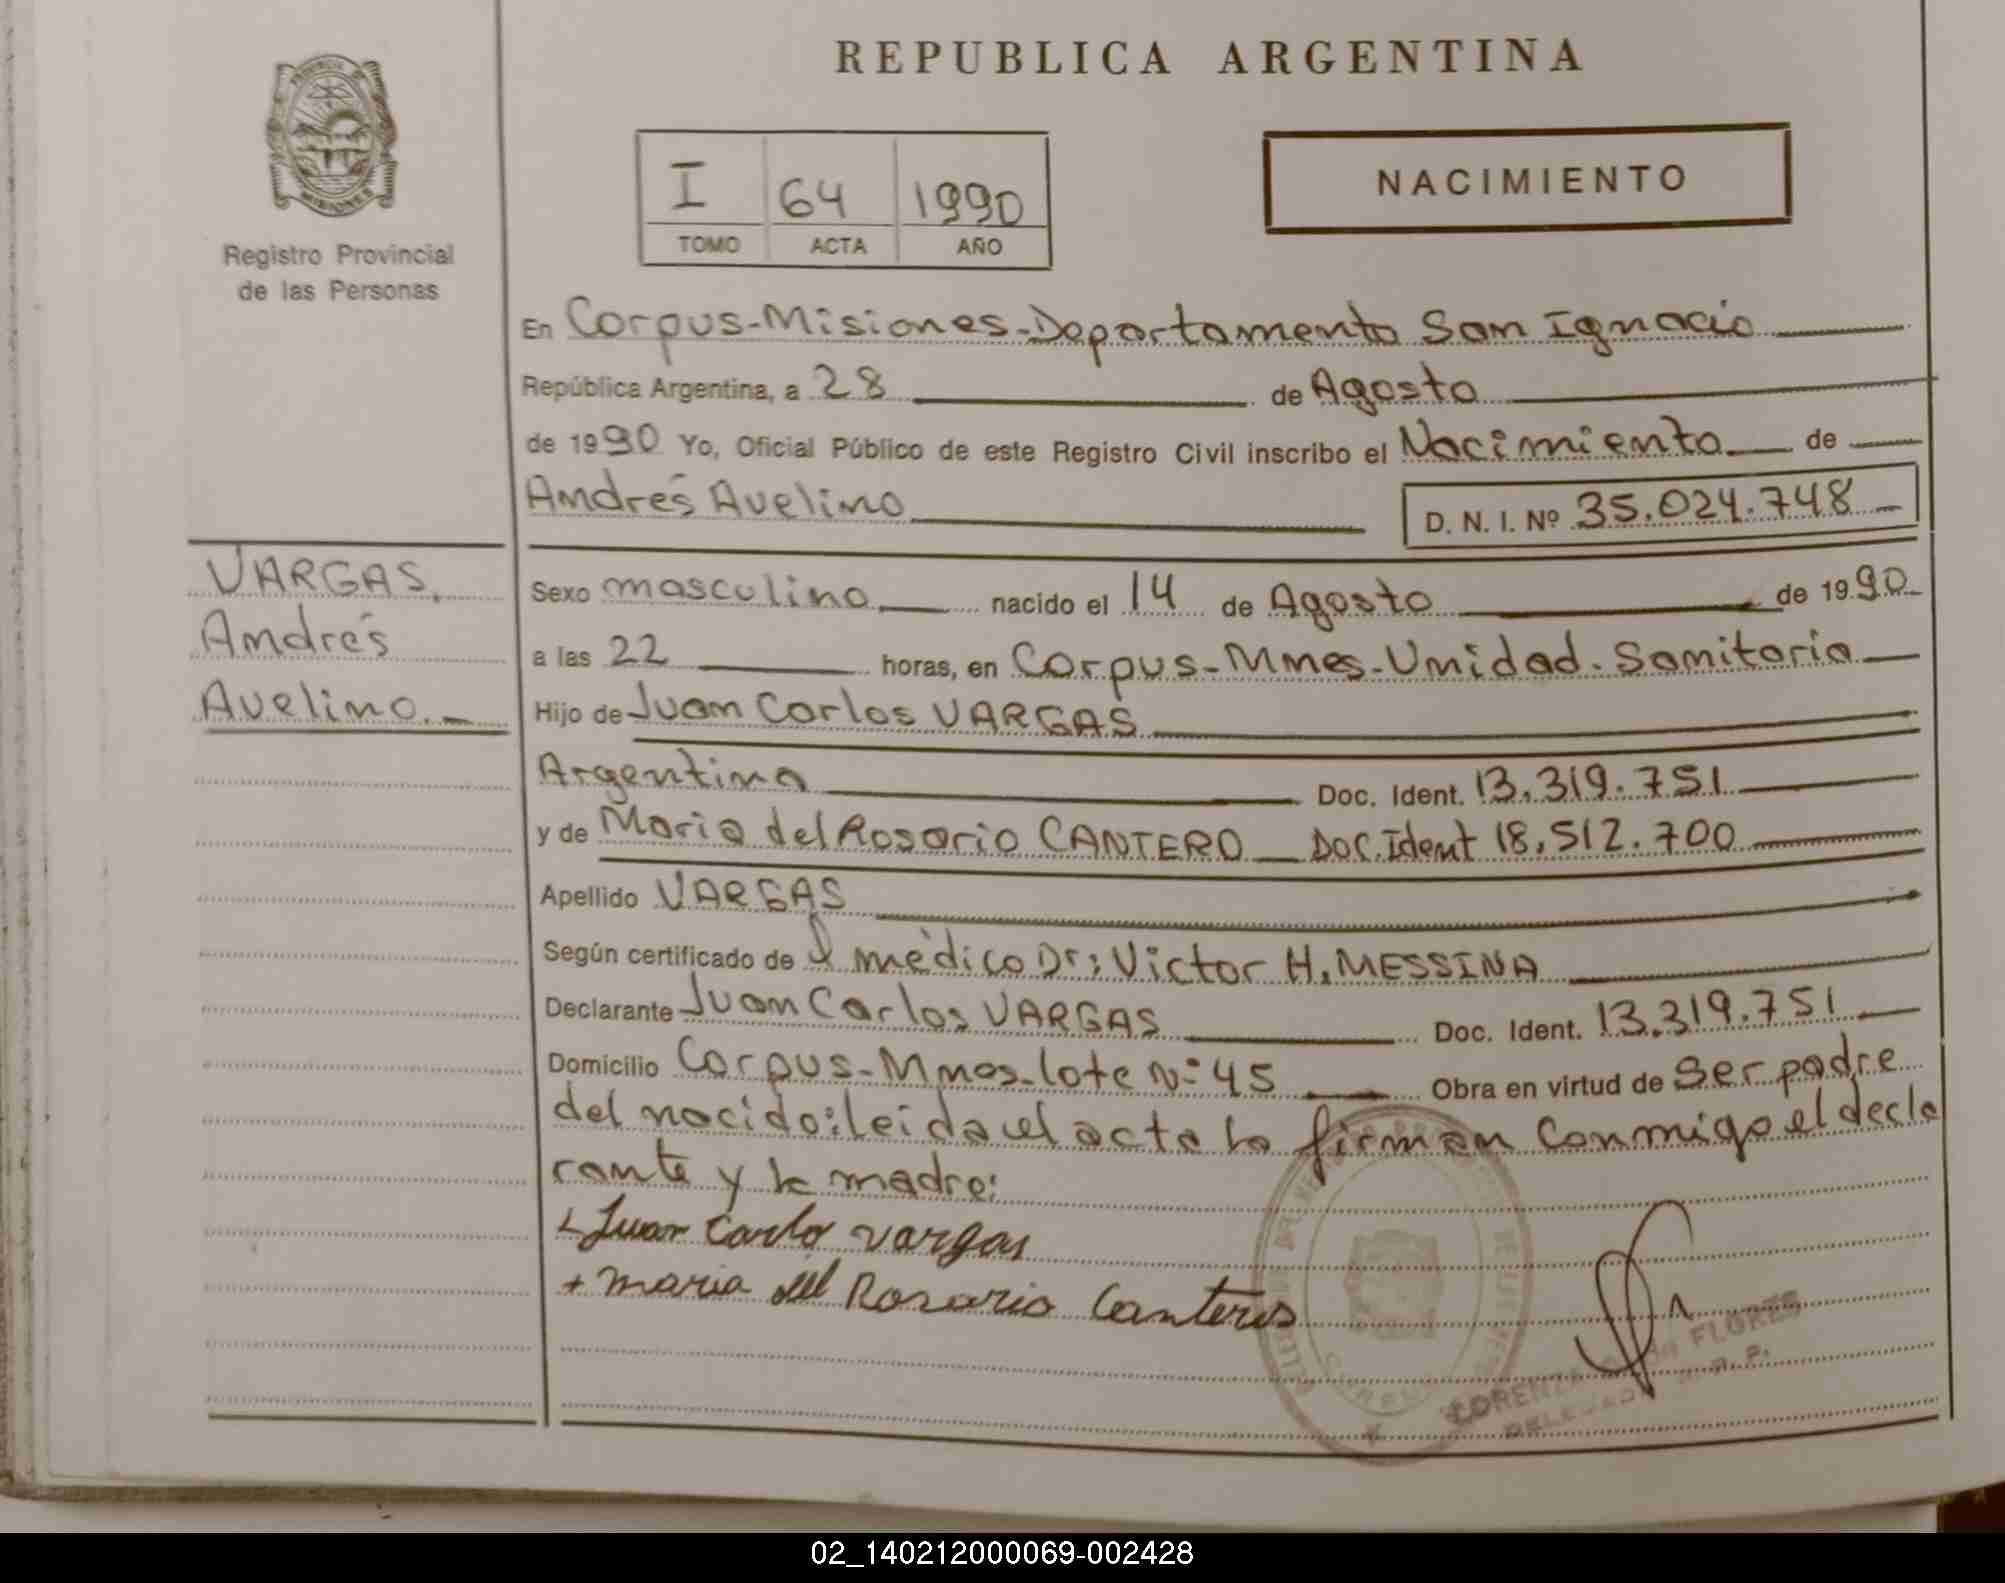 REPUBLICA ARGENTINA
I 64 1990
TOMO ACTA AÑO
NACIMIENTO
MISIONES
Registro Provincial
de las Personas
En Corpus-Misiones-Departamento San Ignacio
República Argentina, a 28 de Agosto
de 1990 Yo, Oficial Público de este Registro Civil inscribo el Nacimiento de
Andrés Avelino D. N. I. Nº 35.024.748
VARGAS,
Andrés
Avelino.
Sexo masculino nacido el 14 de Agosto de 1990
a las 22 horas, en Corpus-Mnes-Unidad. Sanitaria
Hijo de Juan Carlos VARGAS
Argentina Doc. Ident. 13.319.751
y de Maria del Rosario CANTERO Doc. Ident 18.512.700
Apellido VARGAS
Según certificado de l médico Dr: Victor H. MESSINA
Declarante Juan Carlos VARGAS Doc. Ident. 13.319.751
Domicilio Corpus-Mnes-lote Nº 45 Obra en virtud de ser padre
del nacido: leida el acta la firman conmigo el decla
rante y la madre:
Juan Carlo Vargas
+ maria del Rosario Cantero
CORPUS
LORENZA FLORES
02_140212000069-002428